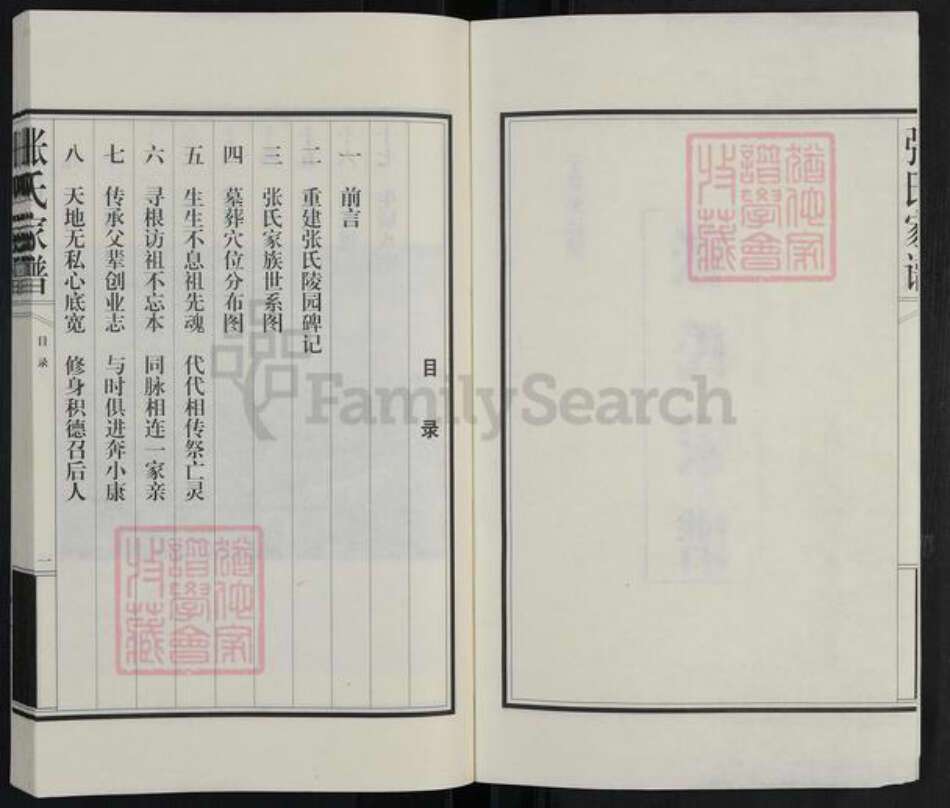 目录
一 前言
二 重建张氏陵园碑记
三 张氏家族世系图
四 墓葬穴位分布图
五 生生不息祖先魂 代代相传祭亡灵
六 寻根访祖不忘本 同脉相连一家亲
七 传承父辈创业志 与时俱进奔小康
八 天地无私心底宽 修身积德召后人
张氏家谱
目录
一
FamilySearch